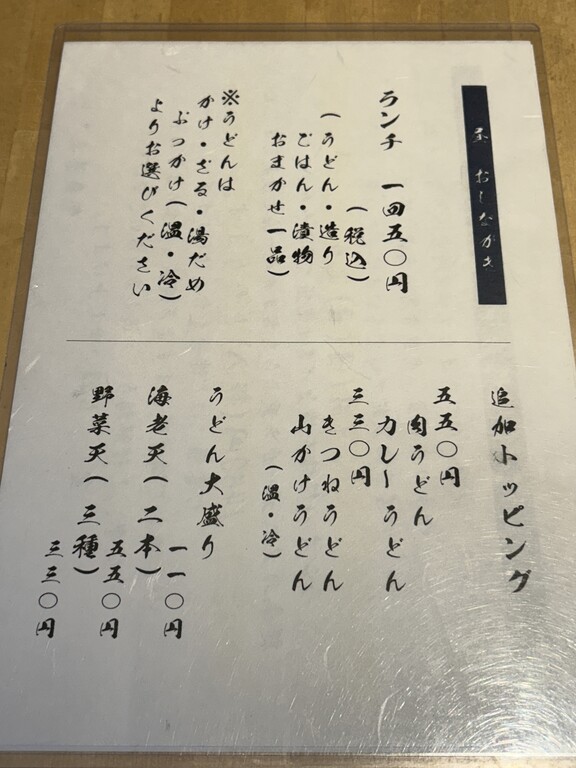 昼 おしながき
ランチ 一四五〇円
(税込)
(うどん・造り
ごはん・漬物
おまかせ一品)
※うどんは
かけ・ざる・湯だめ
ぶっかけ(温・冷)
よりお選びください
追加トッピング
五五〇円
肉うどん
カレーうどん
三三〇円
きつねうどん
山かけうどん
(温・冷)
うどん大盛り
一一〇円
海老天(二本)
五五〇円
野菜天(三種)
三三〇円